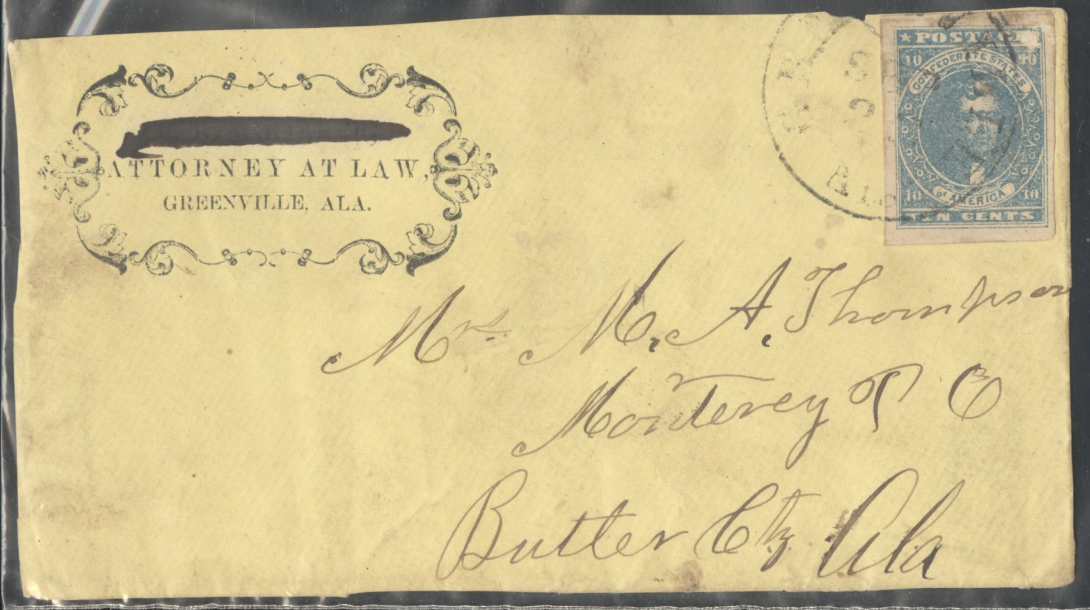 ATTORNEY AT LAW,
GREENVILLE, ALA.
POSTAGE
10 10
CONFEDERATE STATES
OF AMERICA
10 10
TEN CENTS
Mrs. M. A. Thompson
Monterey P O
Butler Cty Ala